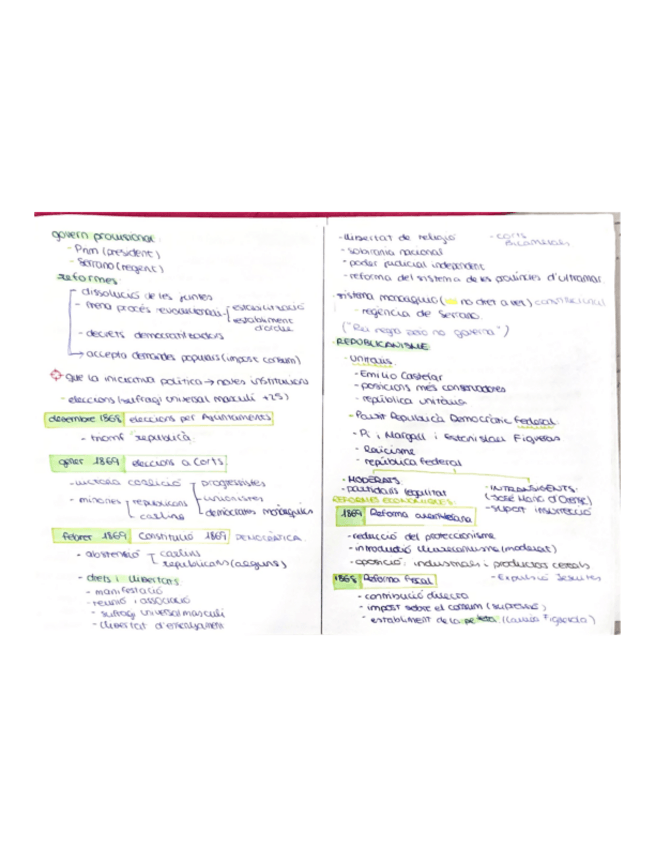 govern provisional:
- Prim (president)
- Serrano (regent)
reformes:
- dissolució de les juntes
- frena procés revolucionari - estabilització
establiment d'ordre
- decrets democratitzadors
→ accepta demandes populars (impost consum)
que la iniciativa política → noves institucions
- eleccions (sufragi universal masculí +25)
desembre 1868 eleccions per Ajuntaments
- triomf republicà
gener 1869 eleccions a Corts
- victòria coalició progressistes
unionistes
demòcrates monàrquics
- minories republicans
carlins
febrer 1869 Constitució 1869 DEMOCRÀTICA
- abstenció carlins
republicans (alguns)
- drets i llibertats
- manifestació
- reunió i associació
- sufragi universal masculí
- llibertat d'ensenyament
- llibertat de religió
- corts bicamerals
- sobirania nacional
- poder judicial independent
- reforma del sistema de les províncies d'ultramar.
- sistema monàrquic ( no dret a vet) constitucional
- regència de Serrano.
("Rei regna però no governa")
- REPUBLICANISME
- Unitaris
- Emilio Castelar
- posicions més conservadores
- república unitària
- Partit Republicà Democràtic Federal
- Pi i Margall i Estanislau Figueras
- laïcisme
- república federal
- MODERATS
- partidaris legalitat
- INTRANSIGENTS
(José Maria d'Orense)
- suport insurrecció
REFORMES ECONÒMIQUES
1869 Reforma aranzelària
- reducció del proteccionisme
- introducció lliurecanvisme (moderat)
- oposició: industrials i productors cereals
1868 Reforma fiscal
- Expulsió Jesuïtes
- contribució directa
- impost sobre el consum (suprimit)
- establiment de la pesseta (Laureà Figuerola)